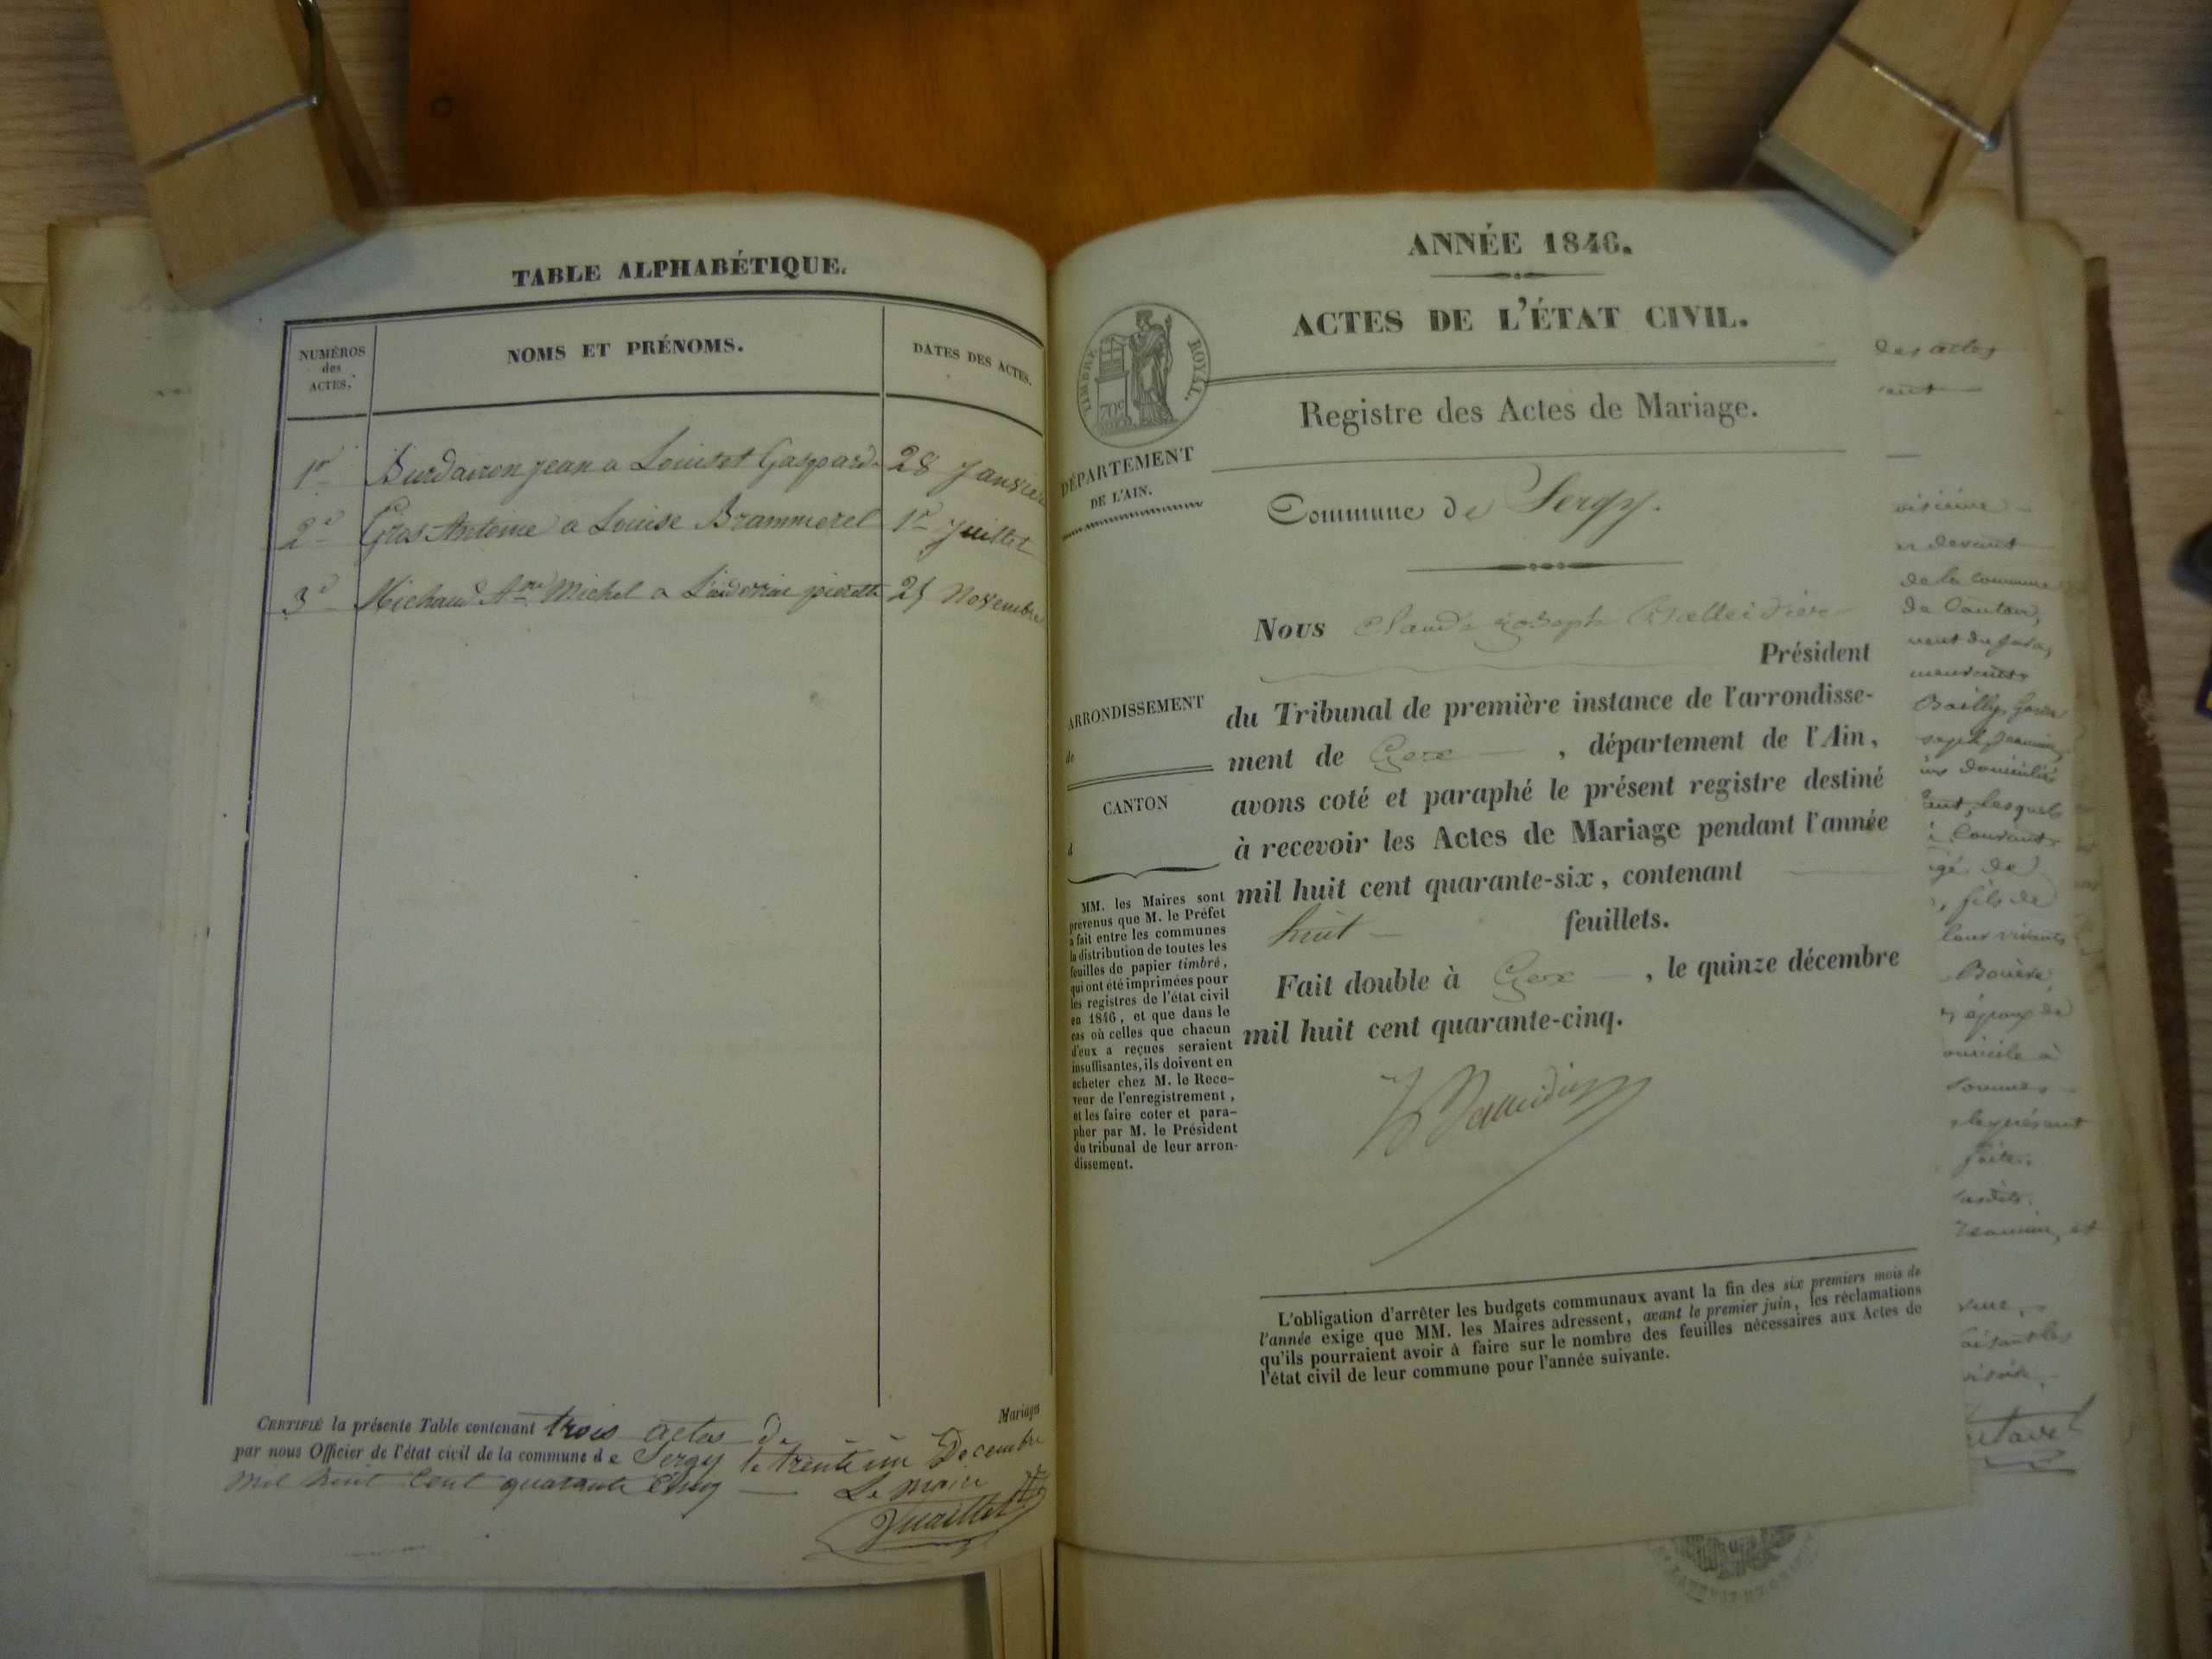 TABLE ALPHABÉTIQUE.
NUMÉROS
des
ACTES.
NOMS ET PRÉNOMS.
DATES DES ACTES.
1er Burdairon jean a Louiset Gaspard 28 Janvier
2d Gros Antoine a Louise Brammerel 1er Juillet
3e Michaud Michel a pierette 25 Novembre
CERTIFIÉ la présente Table contenant trois actes de Mariages
par nous Officier de l'état civil de la commune de Sergy le trente un Decembre
mil huit Cent quarante Cinq Le maire
ANNÉE 1846.
ACTES DE L'ÉTAT CIVIL.
TIMBRE ROYAL.
70c
Registre des Actes de Mariage.
DÉPARTEMENT
DE L'AIN.
Commune de Sergy.
Nous Claude joseph
Président
du Tribunal de première instance de l'arrondisse-
ment de Gex , département de l'Ain,
avons coté et paraphé le présent registre destiné
à recevoir les Actes de Mariage pendant l'année
mil huit cent quarante-six, contenant
huit feuillets.
Fait double à Gex , le quinze décembre
mil huit cent quarante-cinq.
ARRONDISSEMENT
de
CANTON
d
MM. les Maires sont
prévenus que M. le Préfet
a fait entre les communes
la distribution de toutes les
feuilles de papier timbré,
qui ont été imprimées pour
les registres de l'état civil
en 1846, et que dans le
cas où celles que chacun
d'eux a reçues seraient
insuffisantes, ils doivent en
acheter chez M. le Rece-
veur de l'enregistrement,
et les faire coter et para-
pher par M. le Président
du tribunal de leur arron-
dissement.
L'obligation d'arrêter les budgets communaux avant la fin des six premiers mois de
l'année exige que MM. les Maires adressent, avant le premier juin, les réclamations
qu'ils pourraient avoir à faire sur le nombre des feuilles nécessaires aux Actes de
l'état civil de leur commune pour l'année suivante.
des actes
devant
de la commune
de Canton,
ment du Jura,
Bailly
domiciliés
lesquels
Courant
de
, fils de
leur vivants
époux de
domicile à
faite.
et